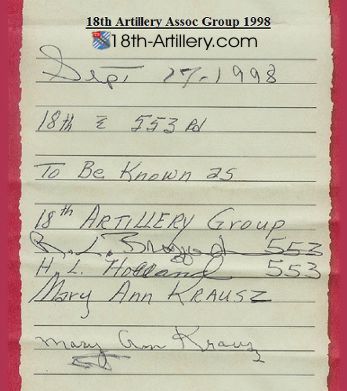 18th Artillery Assoc Group 1998
18th-Artillery.com
Sept 17-1998
18th & 553 Rd
To Be Known as
18th ARTILLERY Group
R. L. 553
H. L. Holland 553
Mary Ann KRAUSZ
Mary Ann Krausz